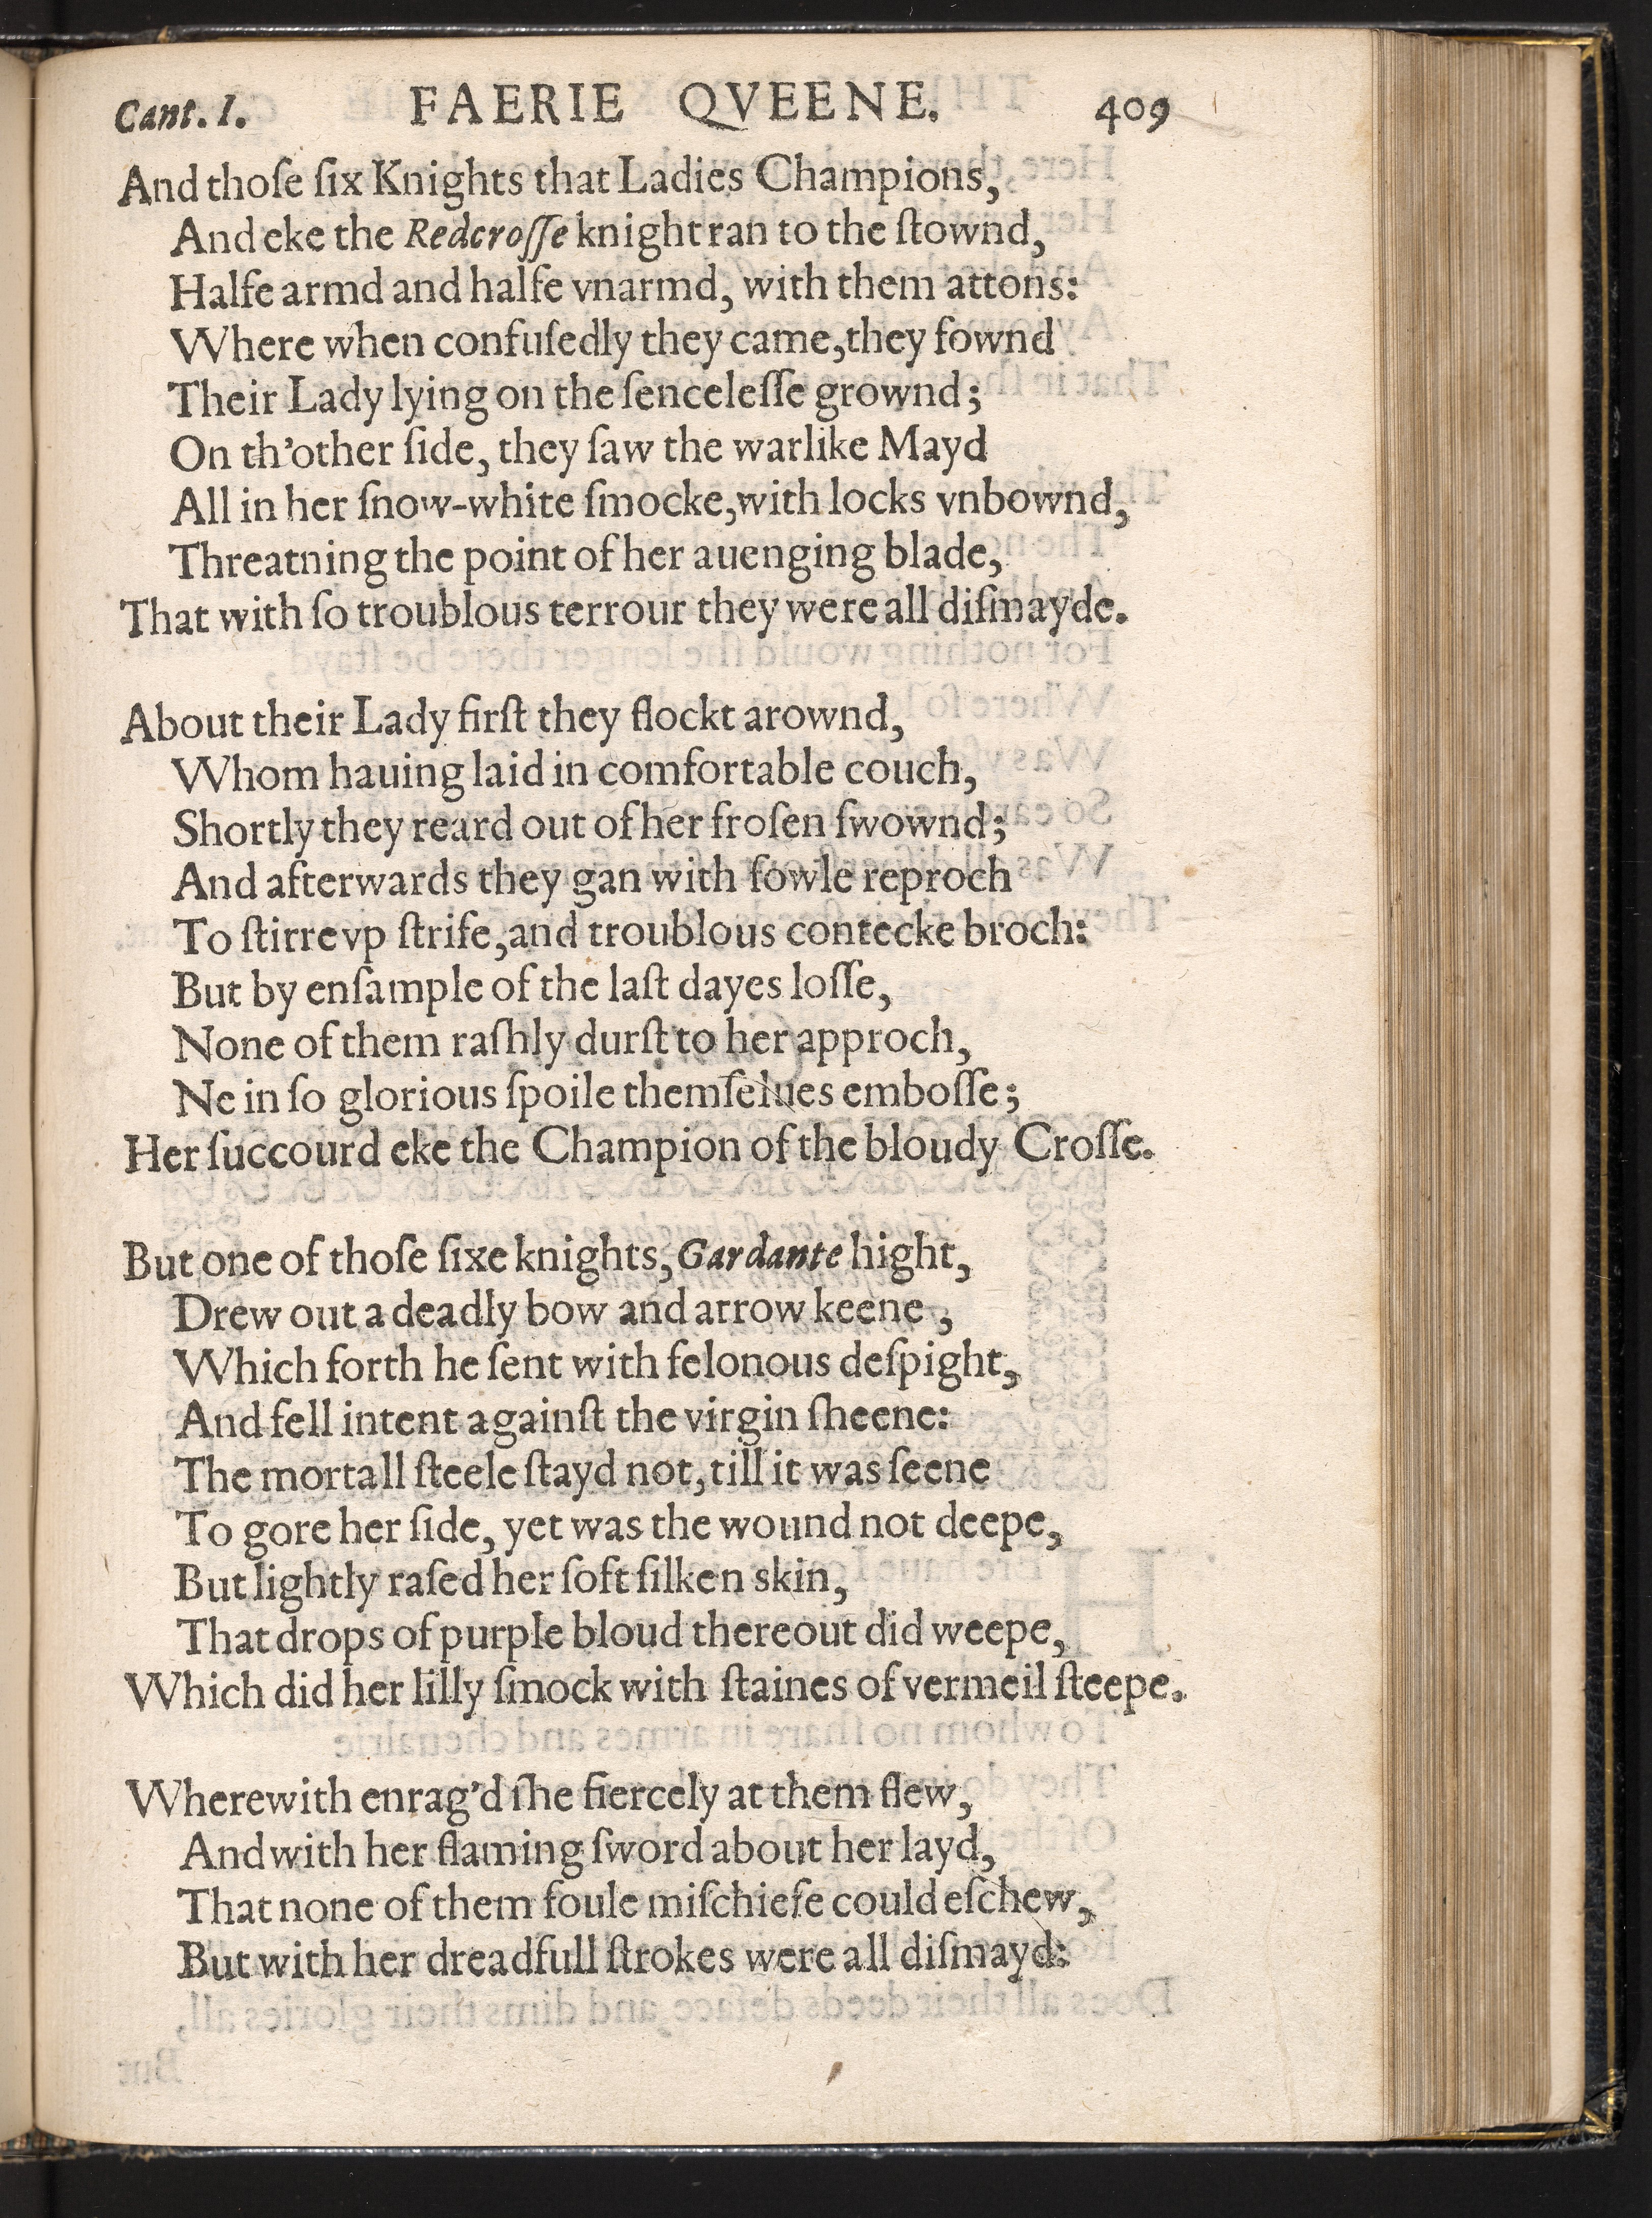 Cant. I. FAERIE QVEENE. 409
And thoſe ſix Knights that Ladies Champions,
And eke the Redcroſſe knight ran to the ſtownd,
Halfe armd and halfe vnarmd, with them attons:
Where when confuſedly they came, they fownd
Their Lady lying on the ſenceleſſe grownd;
On th'other ſide, they ſaw the warlike Mayd
All in her ſnow-white ſmocke, with locks vnbownd,
Threatning the point of her auenging blade,
That with ſo troublous terrour they were all diſmayde.
About their Lady firſt they flockt arownd,
Whom hauing laid in comfortable couch,
Shortly they reard out of her froſen ſwownd;
And afterwards they gan with fowle reproch
To ſtirre vp ſtrife, and troublous contecke broch:
But by enſample of the laſt dayes loſſe,
None of them raſhly durſt to her approch,
Ne in ſo glorious ſpoile themſelues emboſſe;
Her ſuccourd eke the Champion of the bloudy Croſſe.
But one of thoſe ſixe knights, Gardante hight,
Drew out a deadly bow and arrow keene,
Which forth he ſent with felonous deſpight,
And fell intent againſt the virgin ſheene:
The mortall ſteele ſtayd not, till it was ſeene
To gore her ſide, yet was the wound not deepe,
But lightly raſed her ſoft ſilken skin,
That drops of purple bloud thereout did weepe,
Which did her lilly ſmock with ſtaines of vermeil ſteepe.
Wherewith enrag'd ſhe fiercely at them flew,
And with her flaming ſword about her layd,
That none of them foule miſchiefe could eſchew,
But with her dreadfull ſtrokes were all diſmayd: